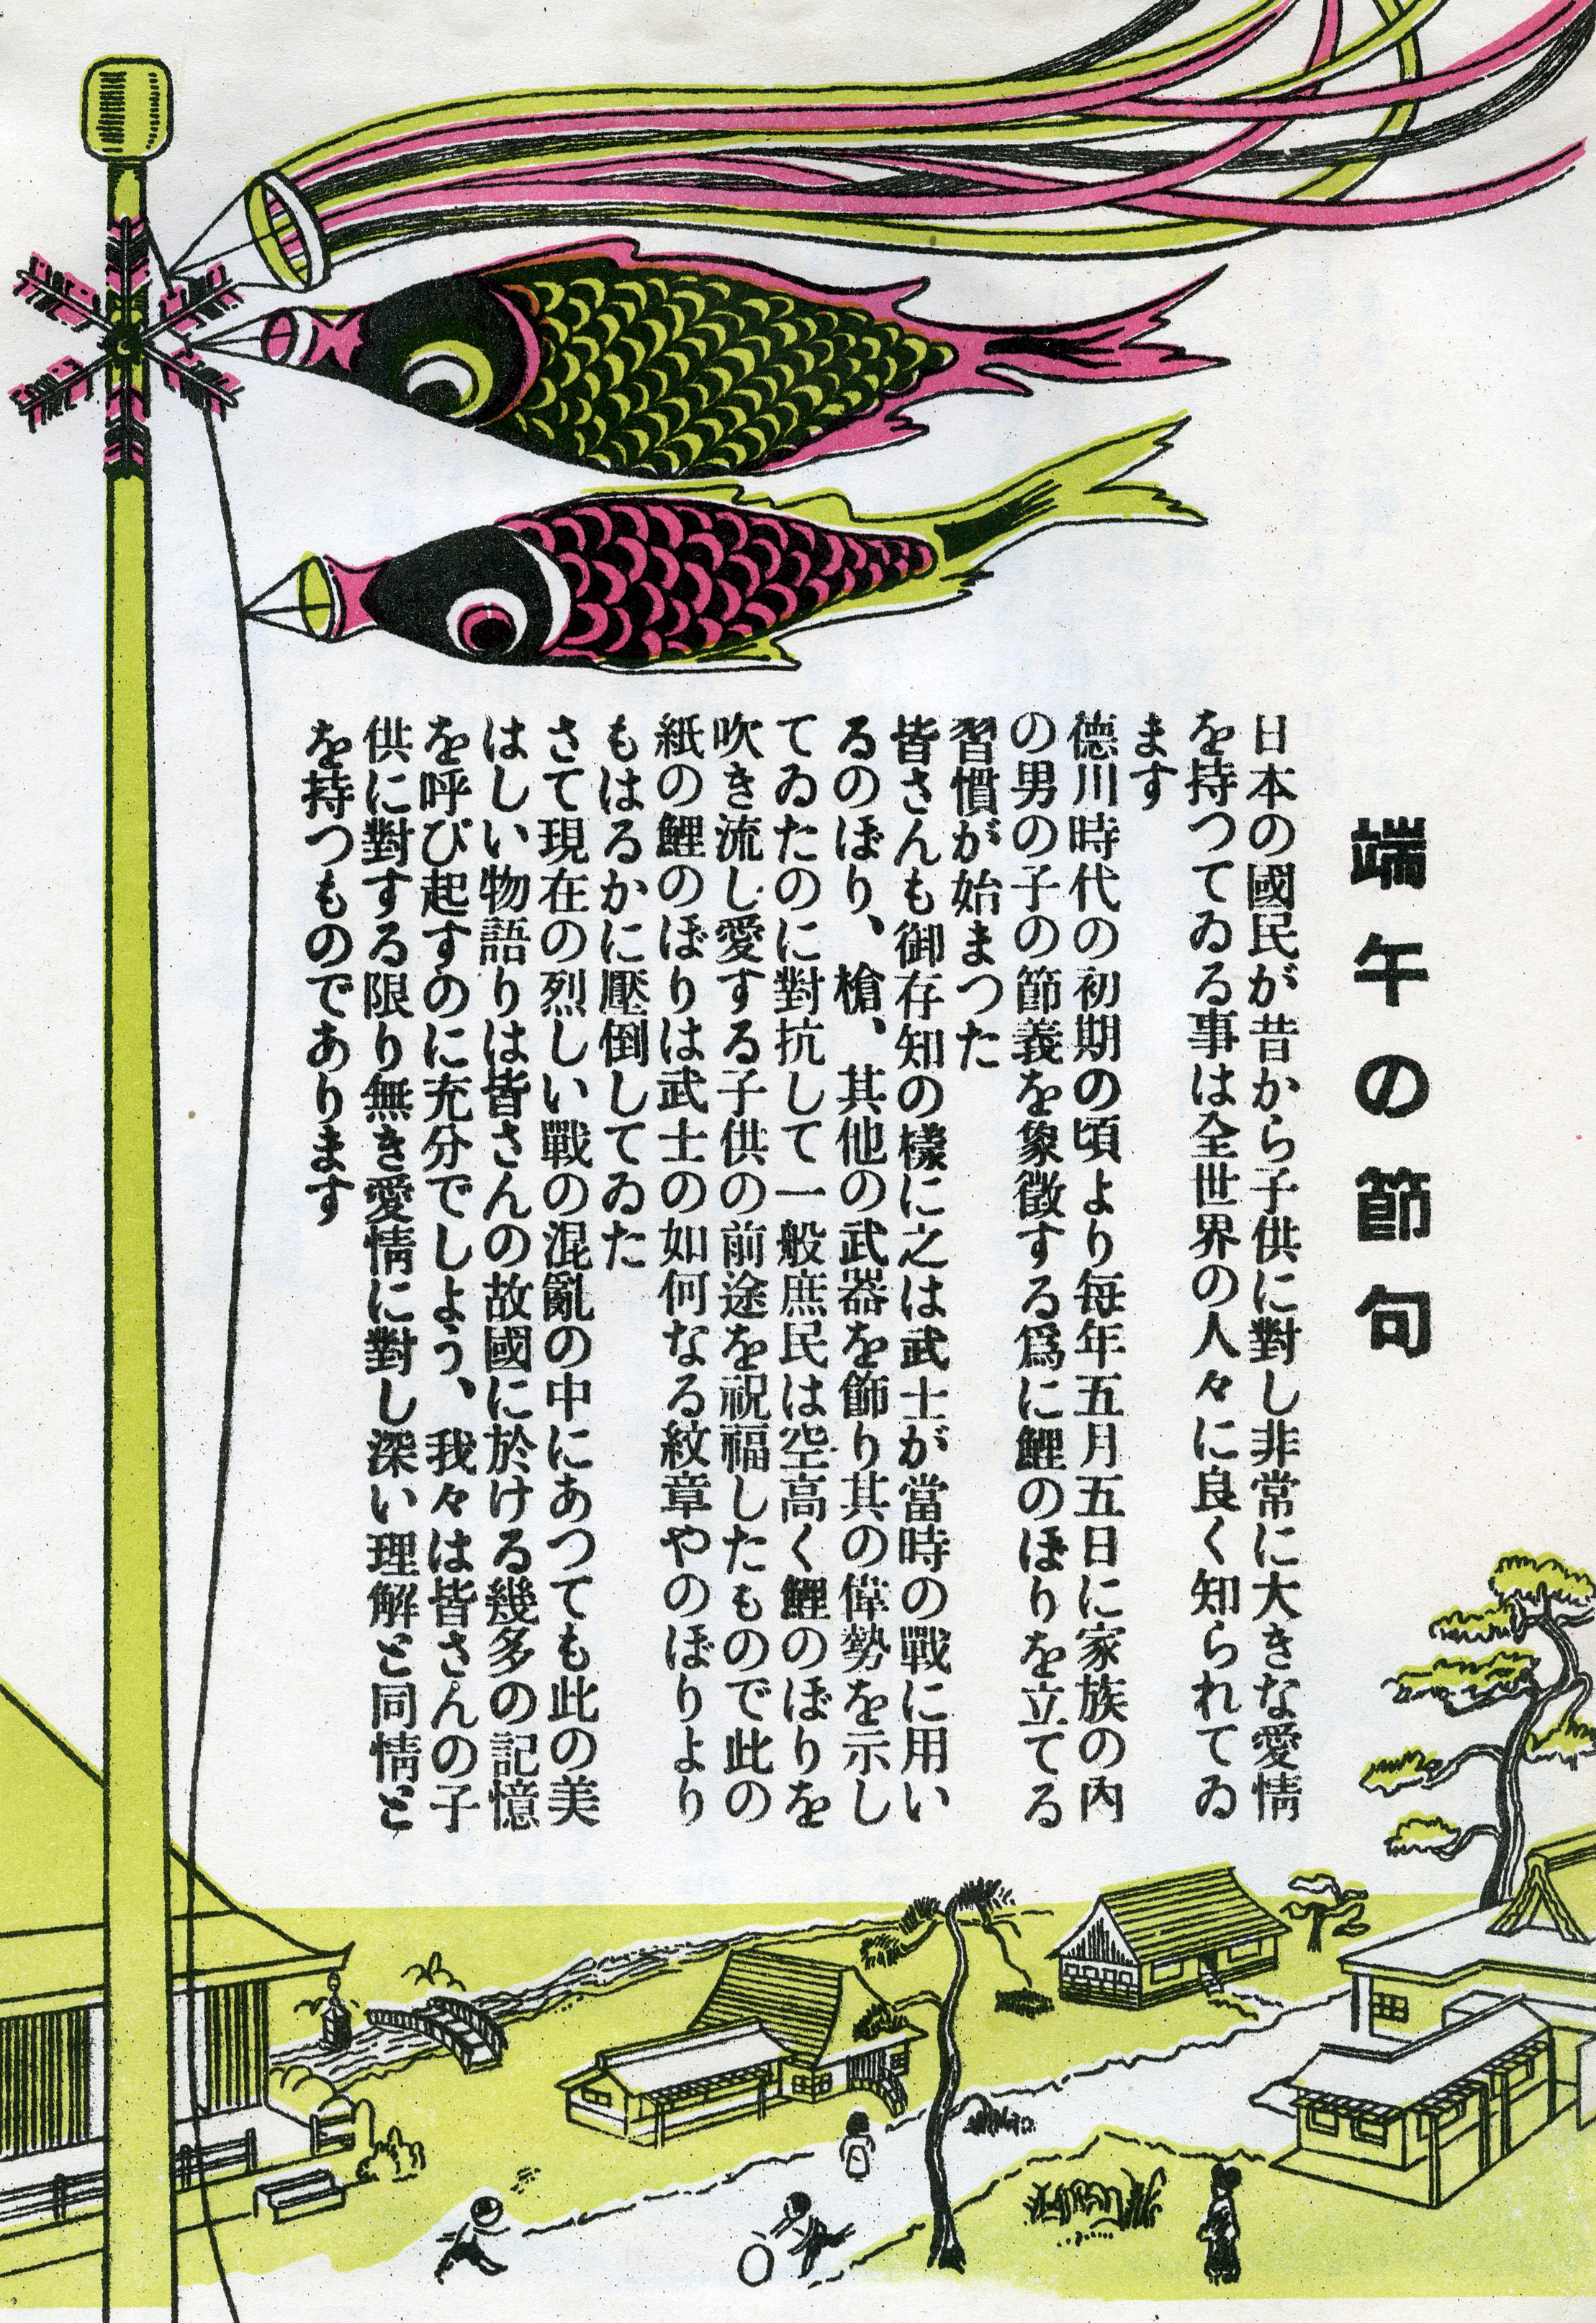 端午の節句
日本の國民が昔から子供に對し非常に大きな愛情
を持つてゐる事は全世界の人々に良く知られてゐ
ます
德川時代の初期の頃より毎年五月五日に家族の內
の男の子の節義を象徵する爲に鯉のぼりを立てる
習慣が始まつた
皆さんも御存知の樣に之は武士が當時の戰に用い
るのぼり、槍、其他の武器を飾り其の偉勢を示し
てゐたのに對抗して一般庶民は空高く鯉のぼりを
吹き流し愛する子供の前途を祝福したもので此の
紙の鯉のぼりは武士の如何なる紋章やのぼりより
もはるかに壓倒してゐた
さて現在の烈しい戰の混亂の中にあつても此の美
はしい物語りは皆さんの故國に於ける幾多の記憶
を呼び起すのに充分でしよう、我々は皆さんの子
供に對する限り無き愛情に對し深い理解と同情と
を持つものであります